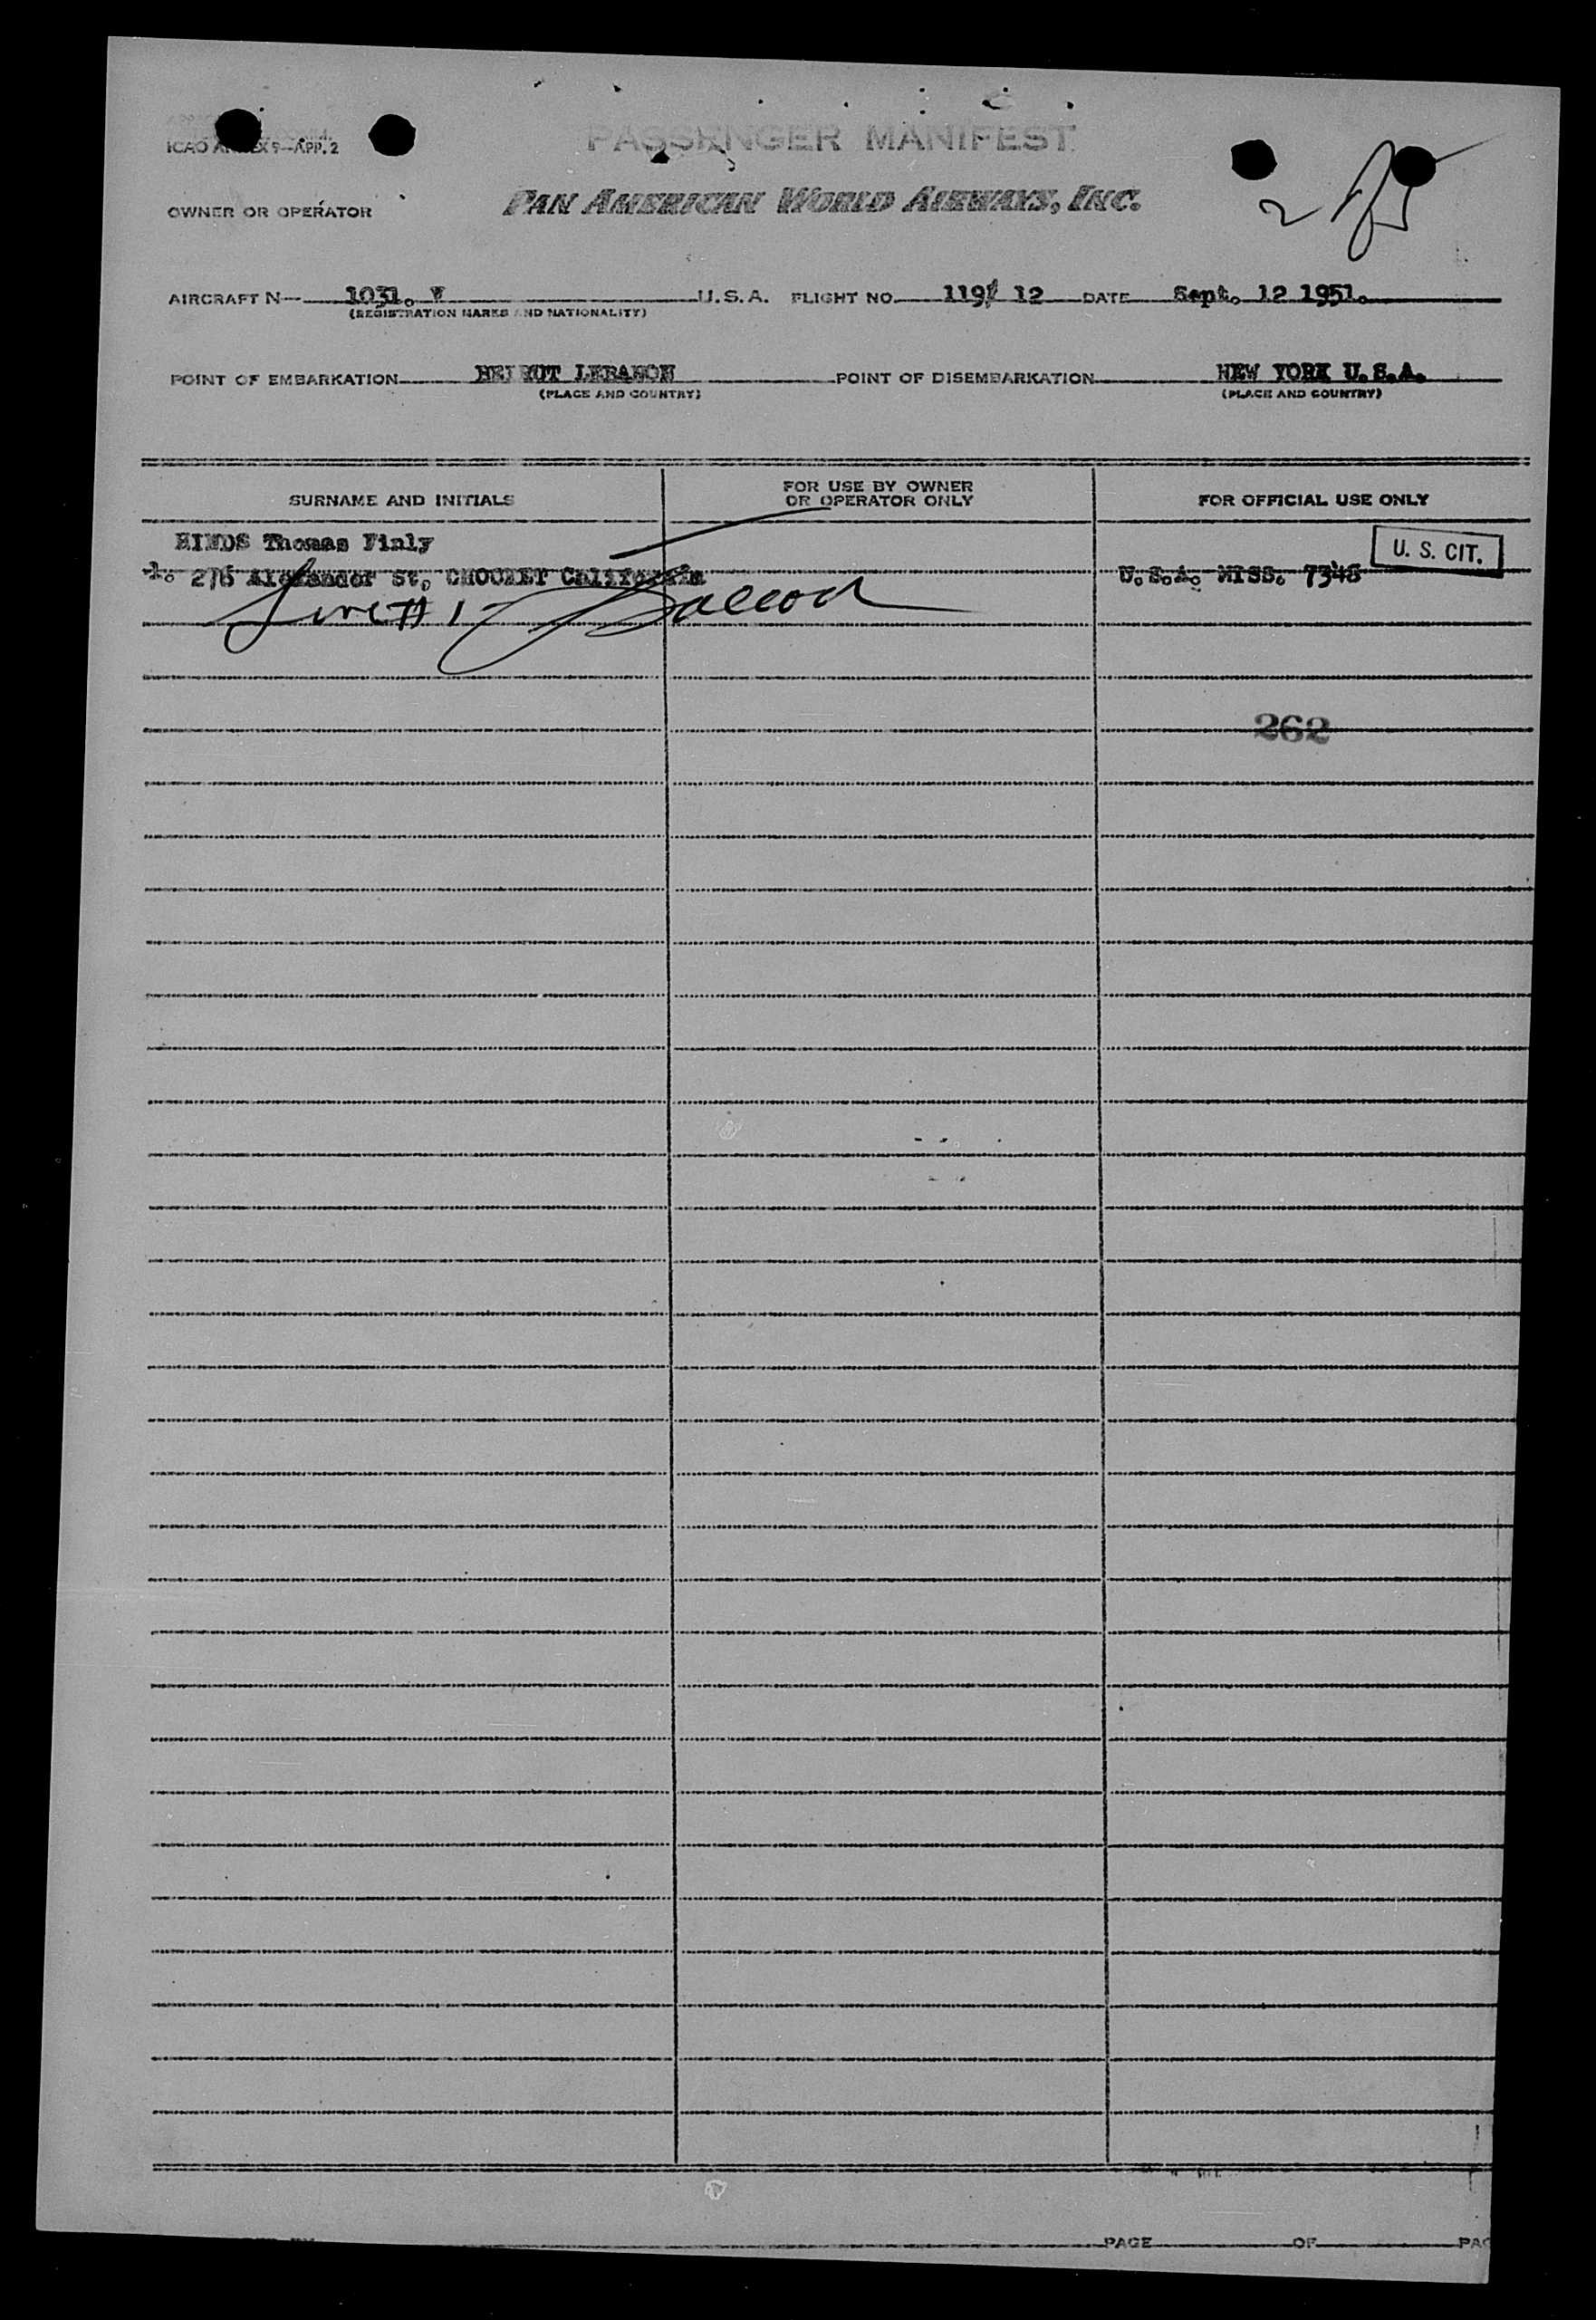 ICAO ANNEX 9—APP. 2
PASSENGER MANIFEST
OWNER OR OPERATOR
PAN AMERICAN WORLD AIRWAYS, INC.
2
AIRCRAFT N— 1031. V U.S.A. FLIGHT NO. 119/ 12 DATE Sept. 12 1951.
(REGISTRATION MARKS AND NATIONALITY)
POINT OF EMBARKATION BEIRUT LEBANON POINT OF DISEMBARKATION NEW YORK U.S.A.
(PLACE AND COUNTRY) (PLACE AND COUNTRY)
SURNAME AND INITIALS FOR USE BY OWNER OR OPERATOR ONLY FOR OFFICIAL USE ONLY
HINDS Thomas Finly U. S. CIT.
1. 276 Alexander St. California U.S.A. MISS. 7348
Line # 1
262
PAGE OF